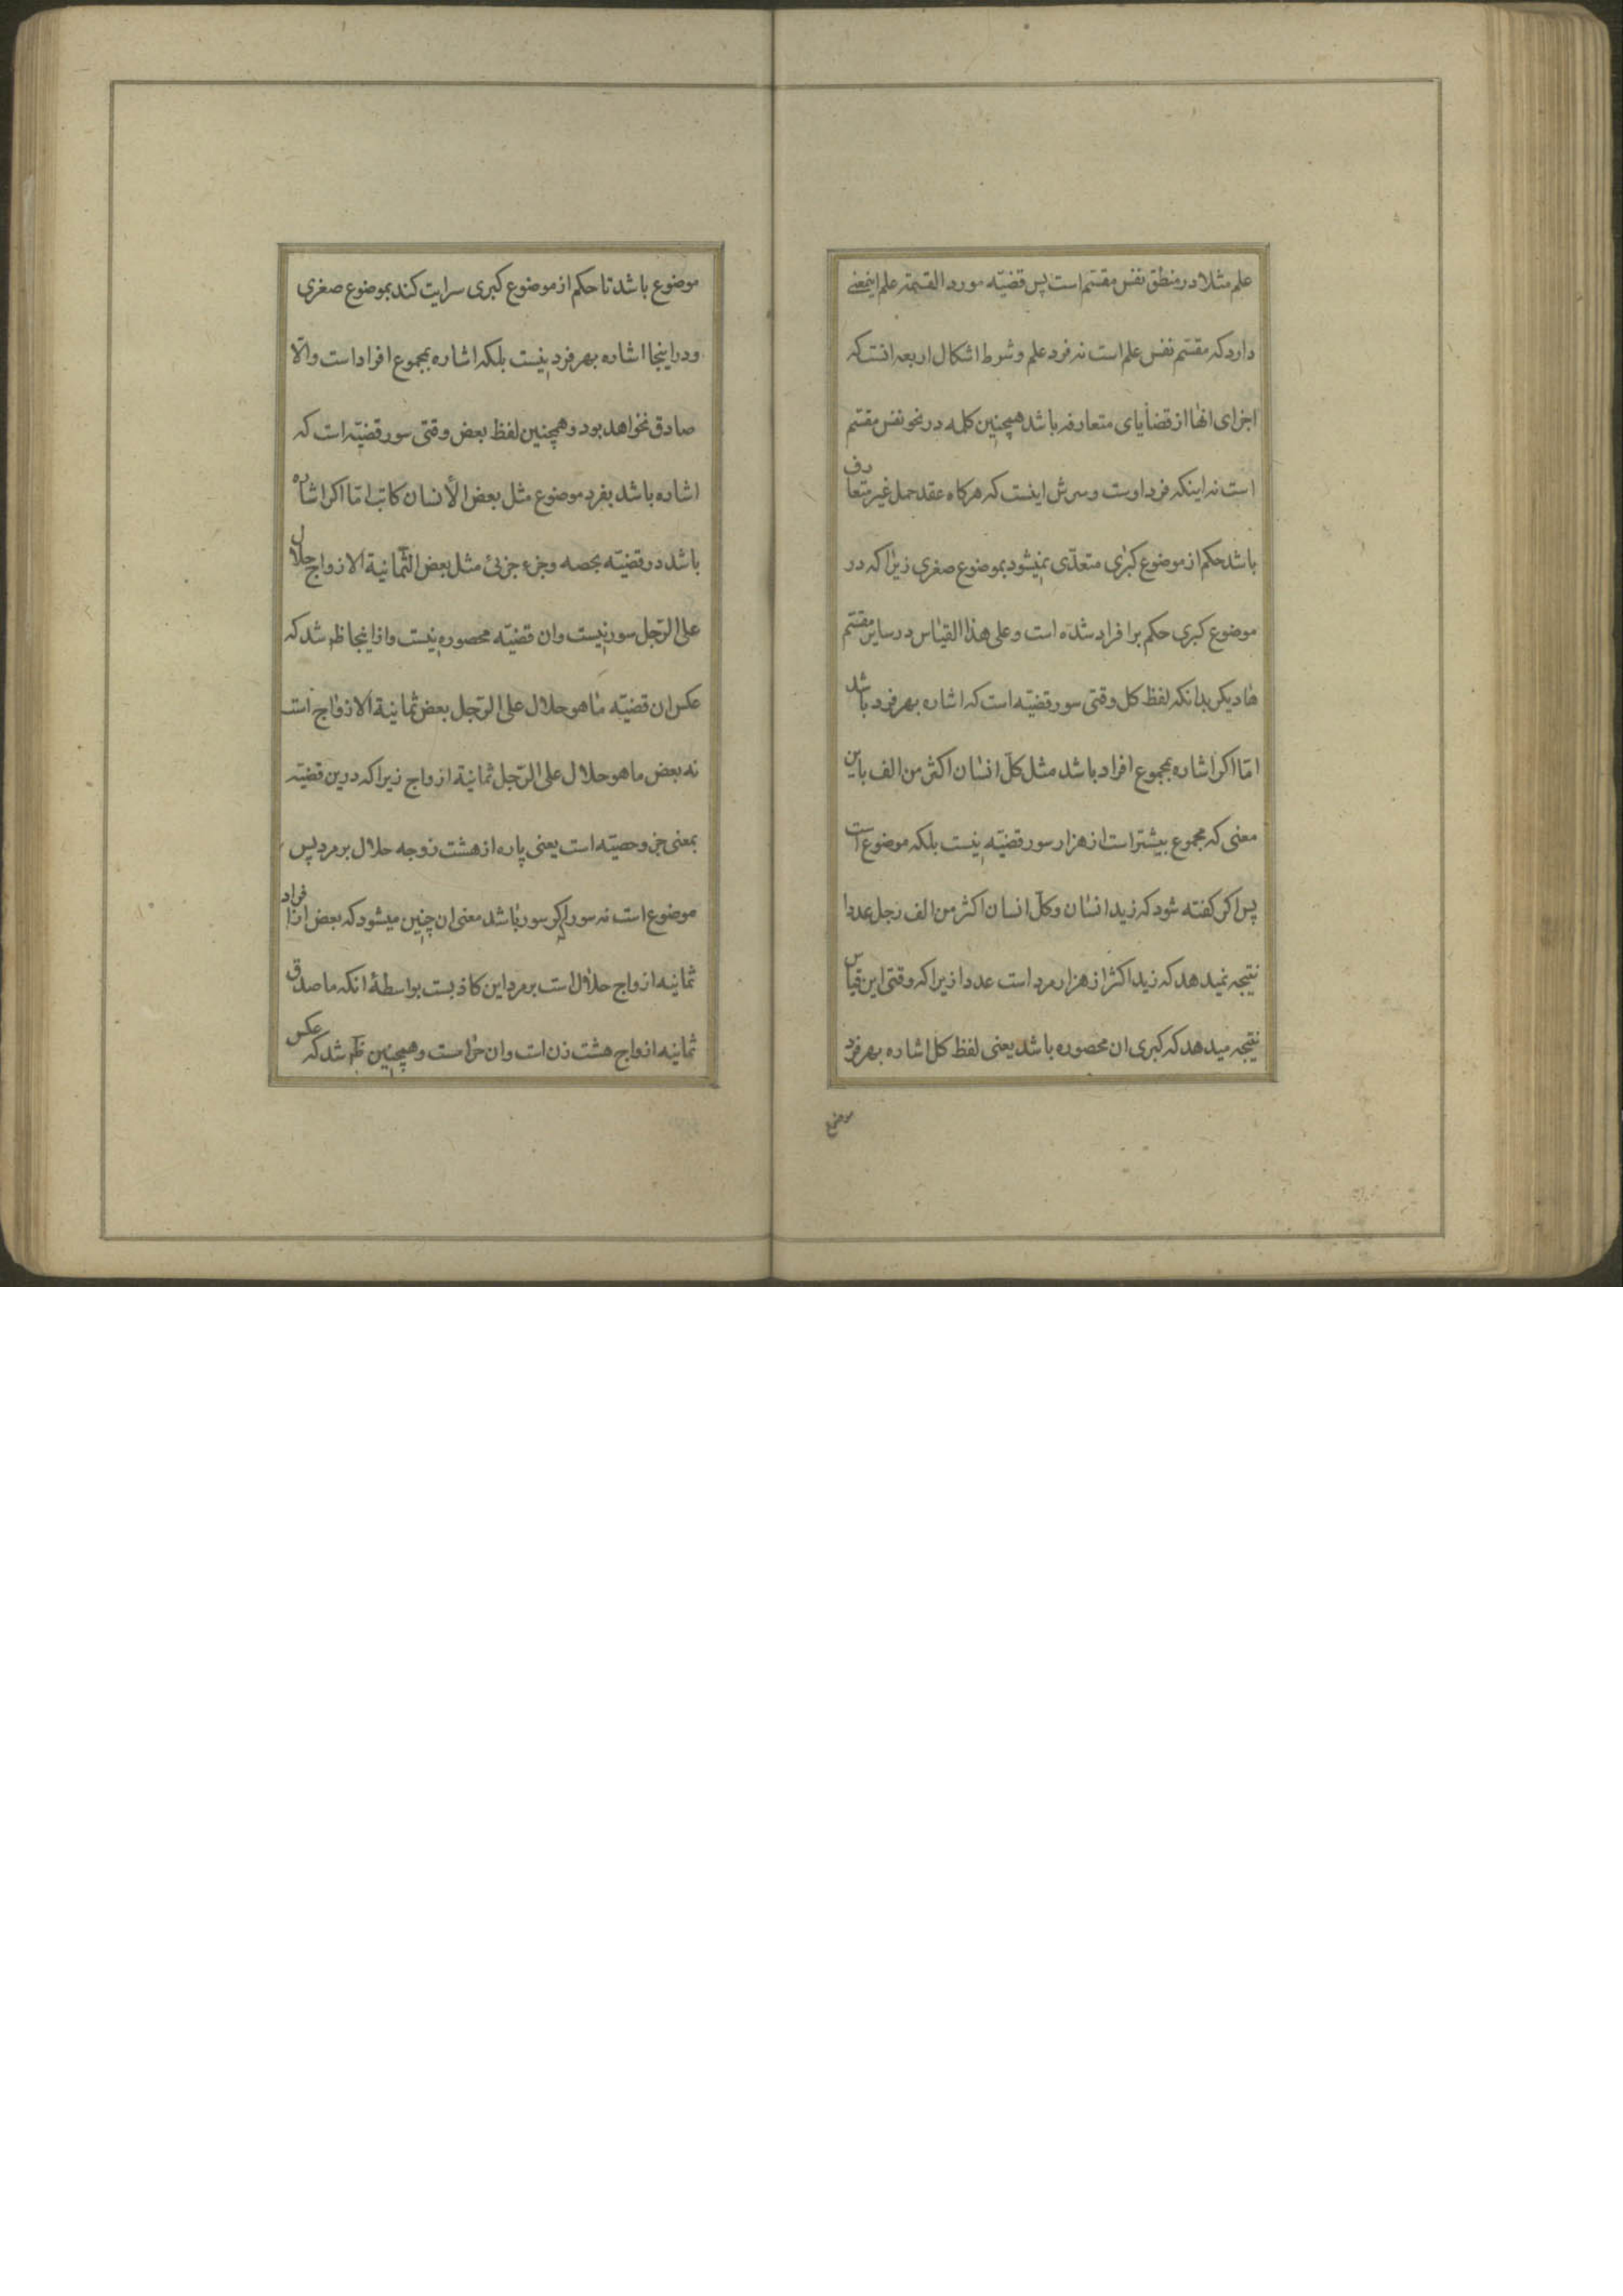 علم مثلا در منطق نفس مقسّم است پس قضیّه مورد القسمة علم اینمعنے
دارد که مقسّم نفس علم است نه فرد علم و شرط اشکال اربعه انست که
اجزای انها از قضایای متعارفه باشد همچنین کلمه در نحو نفس مقسّم
است نه اینکه فرد اوست و سرش اینست که هرکاه عقد حمل غیر متعارف
باشد حکم از موضوع کبری متعدّی نمیشود بموضوع صغری زیرا که در
موضوع کبری حکم بر افراد شده است و علی هذا القیاس در سایر مقسّم
ها دیکر بدانکه لفظ کل وقتی سور قضیّه است که اشاره بهر فرد باشد
امّا اکر اشاره بمجموع افراد باشد مثل کلّ انسان اکثر من الف باین
معنی که مجموع بیشتر است از هزار سور قضیّه نیست بلکه موضوع است
پس اکر کفته شود که زید انسان و کلّ انسان اکثر من الف رجل عددا
نتیجه نمیدهد که زید اکثر از هزار مرد است عددا زیرا که وقتی این قیاس
نتیجه میدهد که کبری ان محصوره باشد یعنی لفظ کل اشاره بهر فرد
موضوع
موضوع باشد تا حکم از موضوع کبری سرایت کند بموضوع صغری
و در اینجا اشاره بهر فرد نیست بلکه اشاره بمجموع افراد است و الّا
صادق نخواهد بود و همچنین لفظ بعض وقتی سور قضیّه است که
اشاره باشد بفرد موضوع مثل بعض الأنسان کاتب امّا اکر اشاره
باشد در قضیّه بحصه و جزء جزئی مثل بعض الثّمانیة الازواج حلال
علی الرّجل سور نیست و ان قضیّه محصوره نیست و از اینجا ظ شد که
عکس ان قضیّه ما هو حلال علی الرّجل بعض ثمانیة الازواج است
نه بعض ما هو حلال علی الرّجل ثمانیة ازواج زیرا که درین قضیّه
بمعنی جزو حصیّه است یعنی پاره از هشت زوجه حلال بر مرد پس
موضوع است نه سور اکر سور باشد معنی ان چنین میشود که بعض از افراد
ثمانیه ازواج حلال است بر مرد این کاذبست بواسطهٔ انکه ما صدق
ثمانیه ازواج هشت زن است و ان حرامست و همچنین ظ شد که عکس